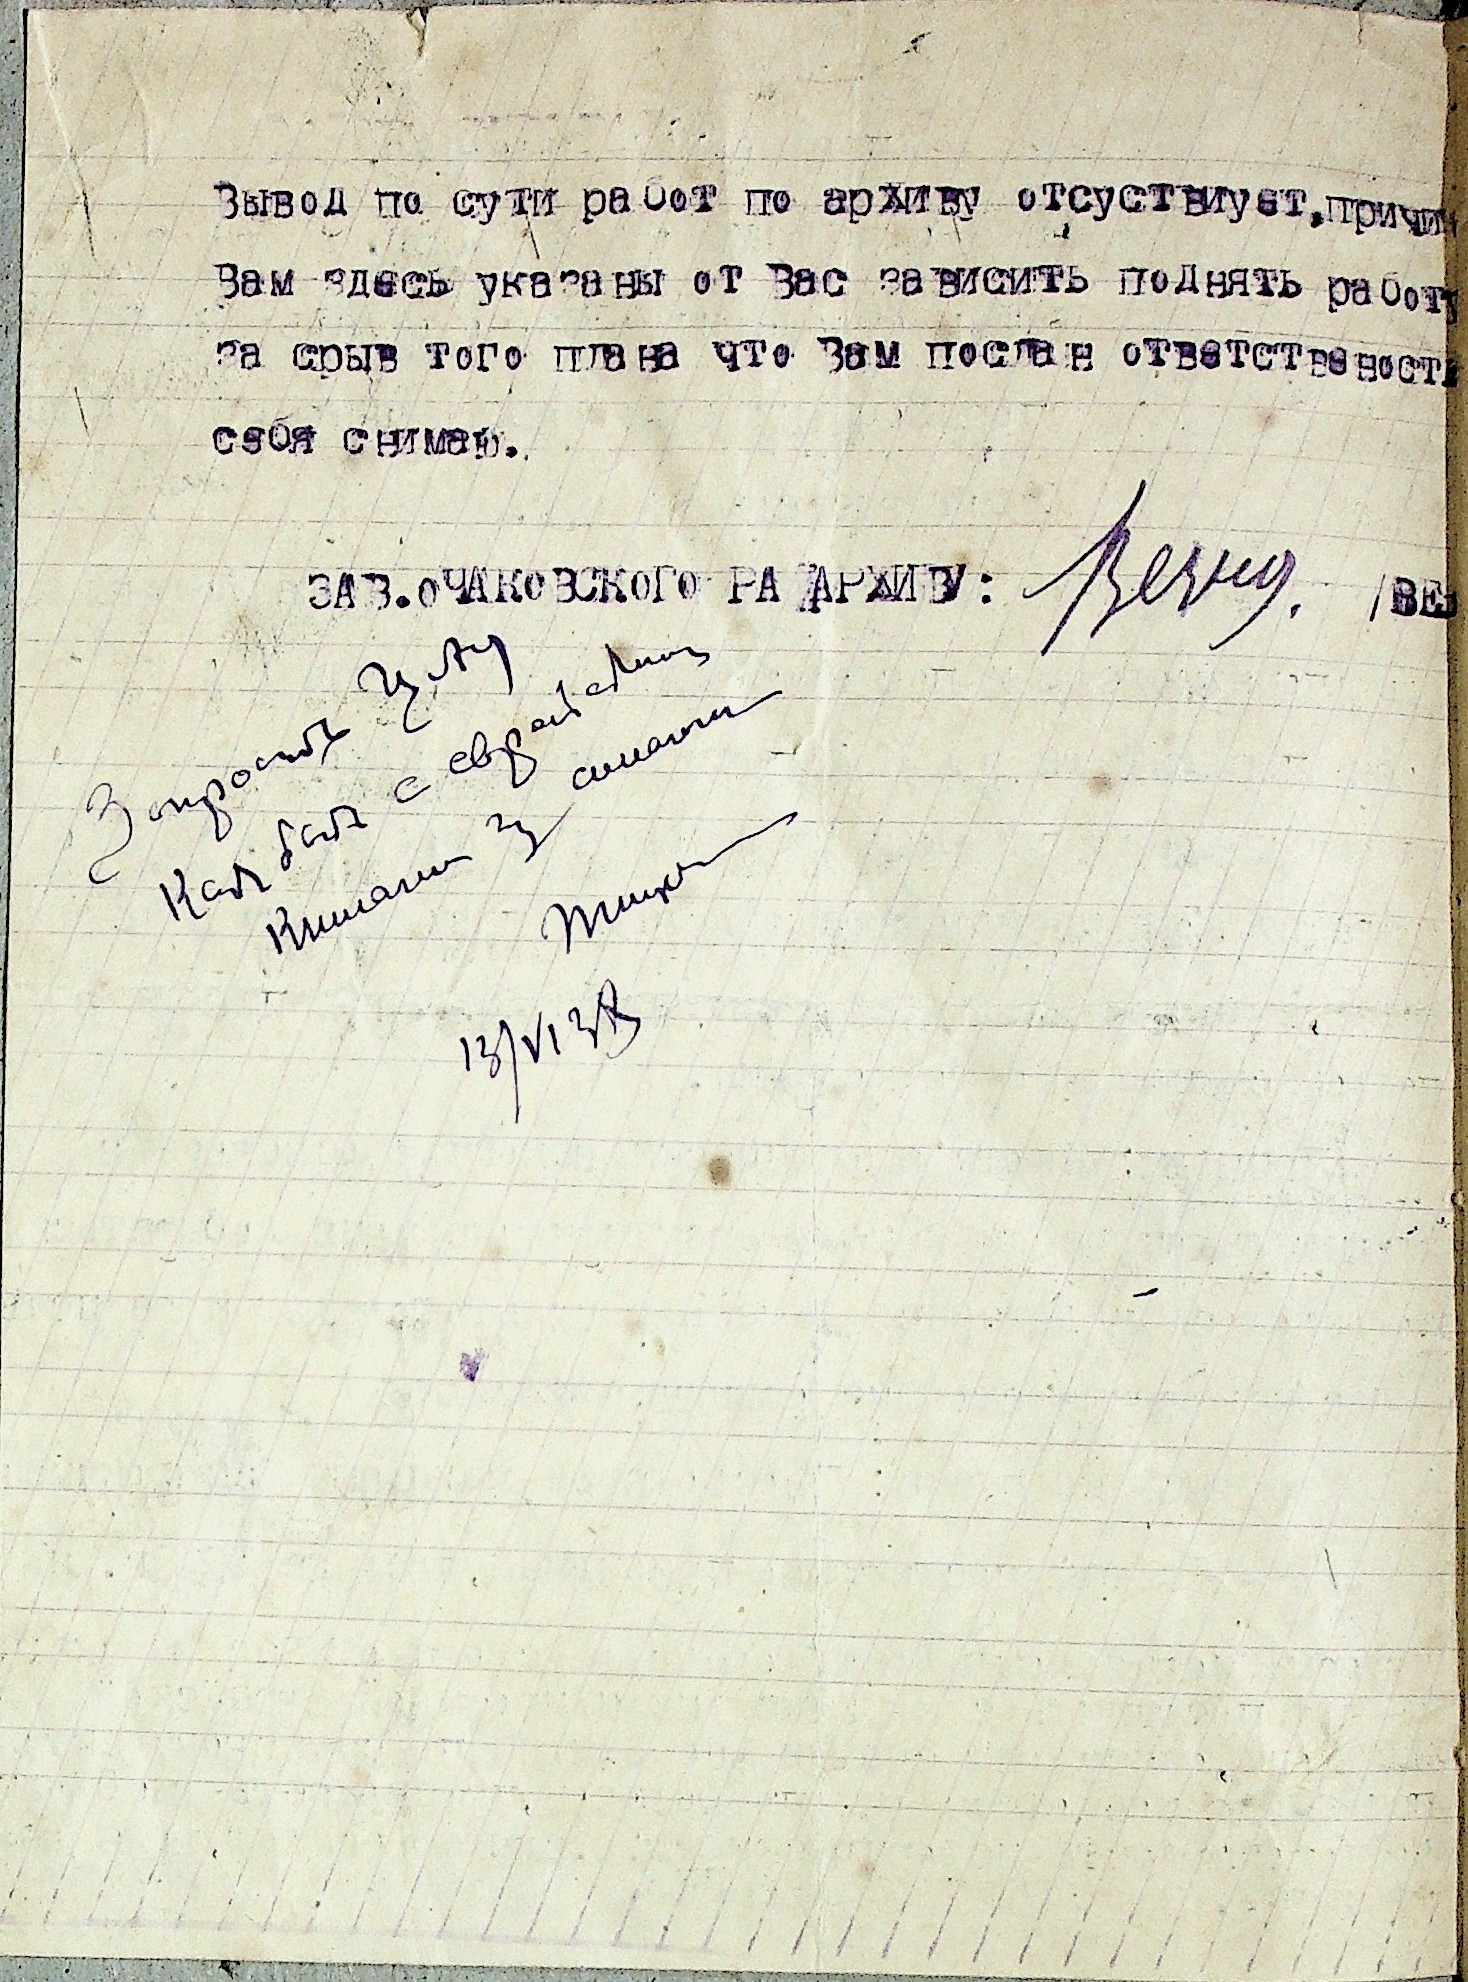 Вывод по сути работ по архиву отсуствиует.причин
Вам здесь указаны от Вас зависить поднять работу
за срыв того плана что Вам послан ответствености
себя снимаю.
ЗАВ.ОЧАКОВСКОГО РА АРХИВУ: /ВЕ
Запросить ЦАУ
Как быть с еврейскими
книгами за
13/VI 38